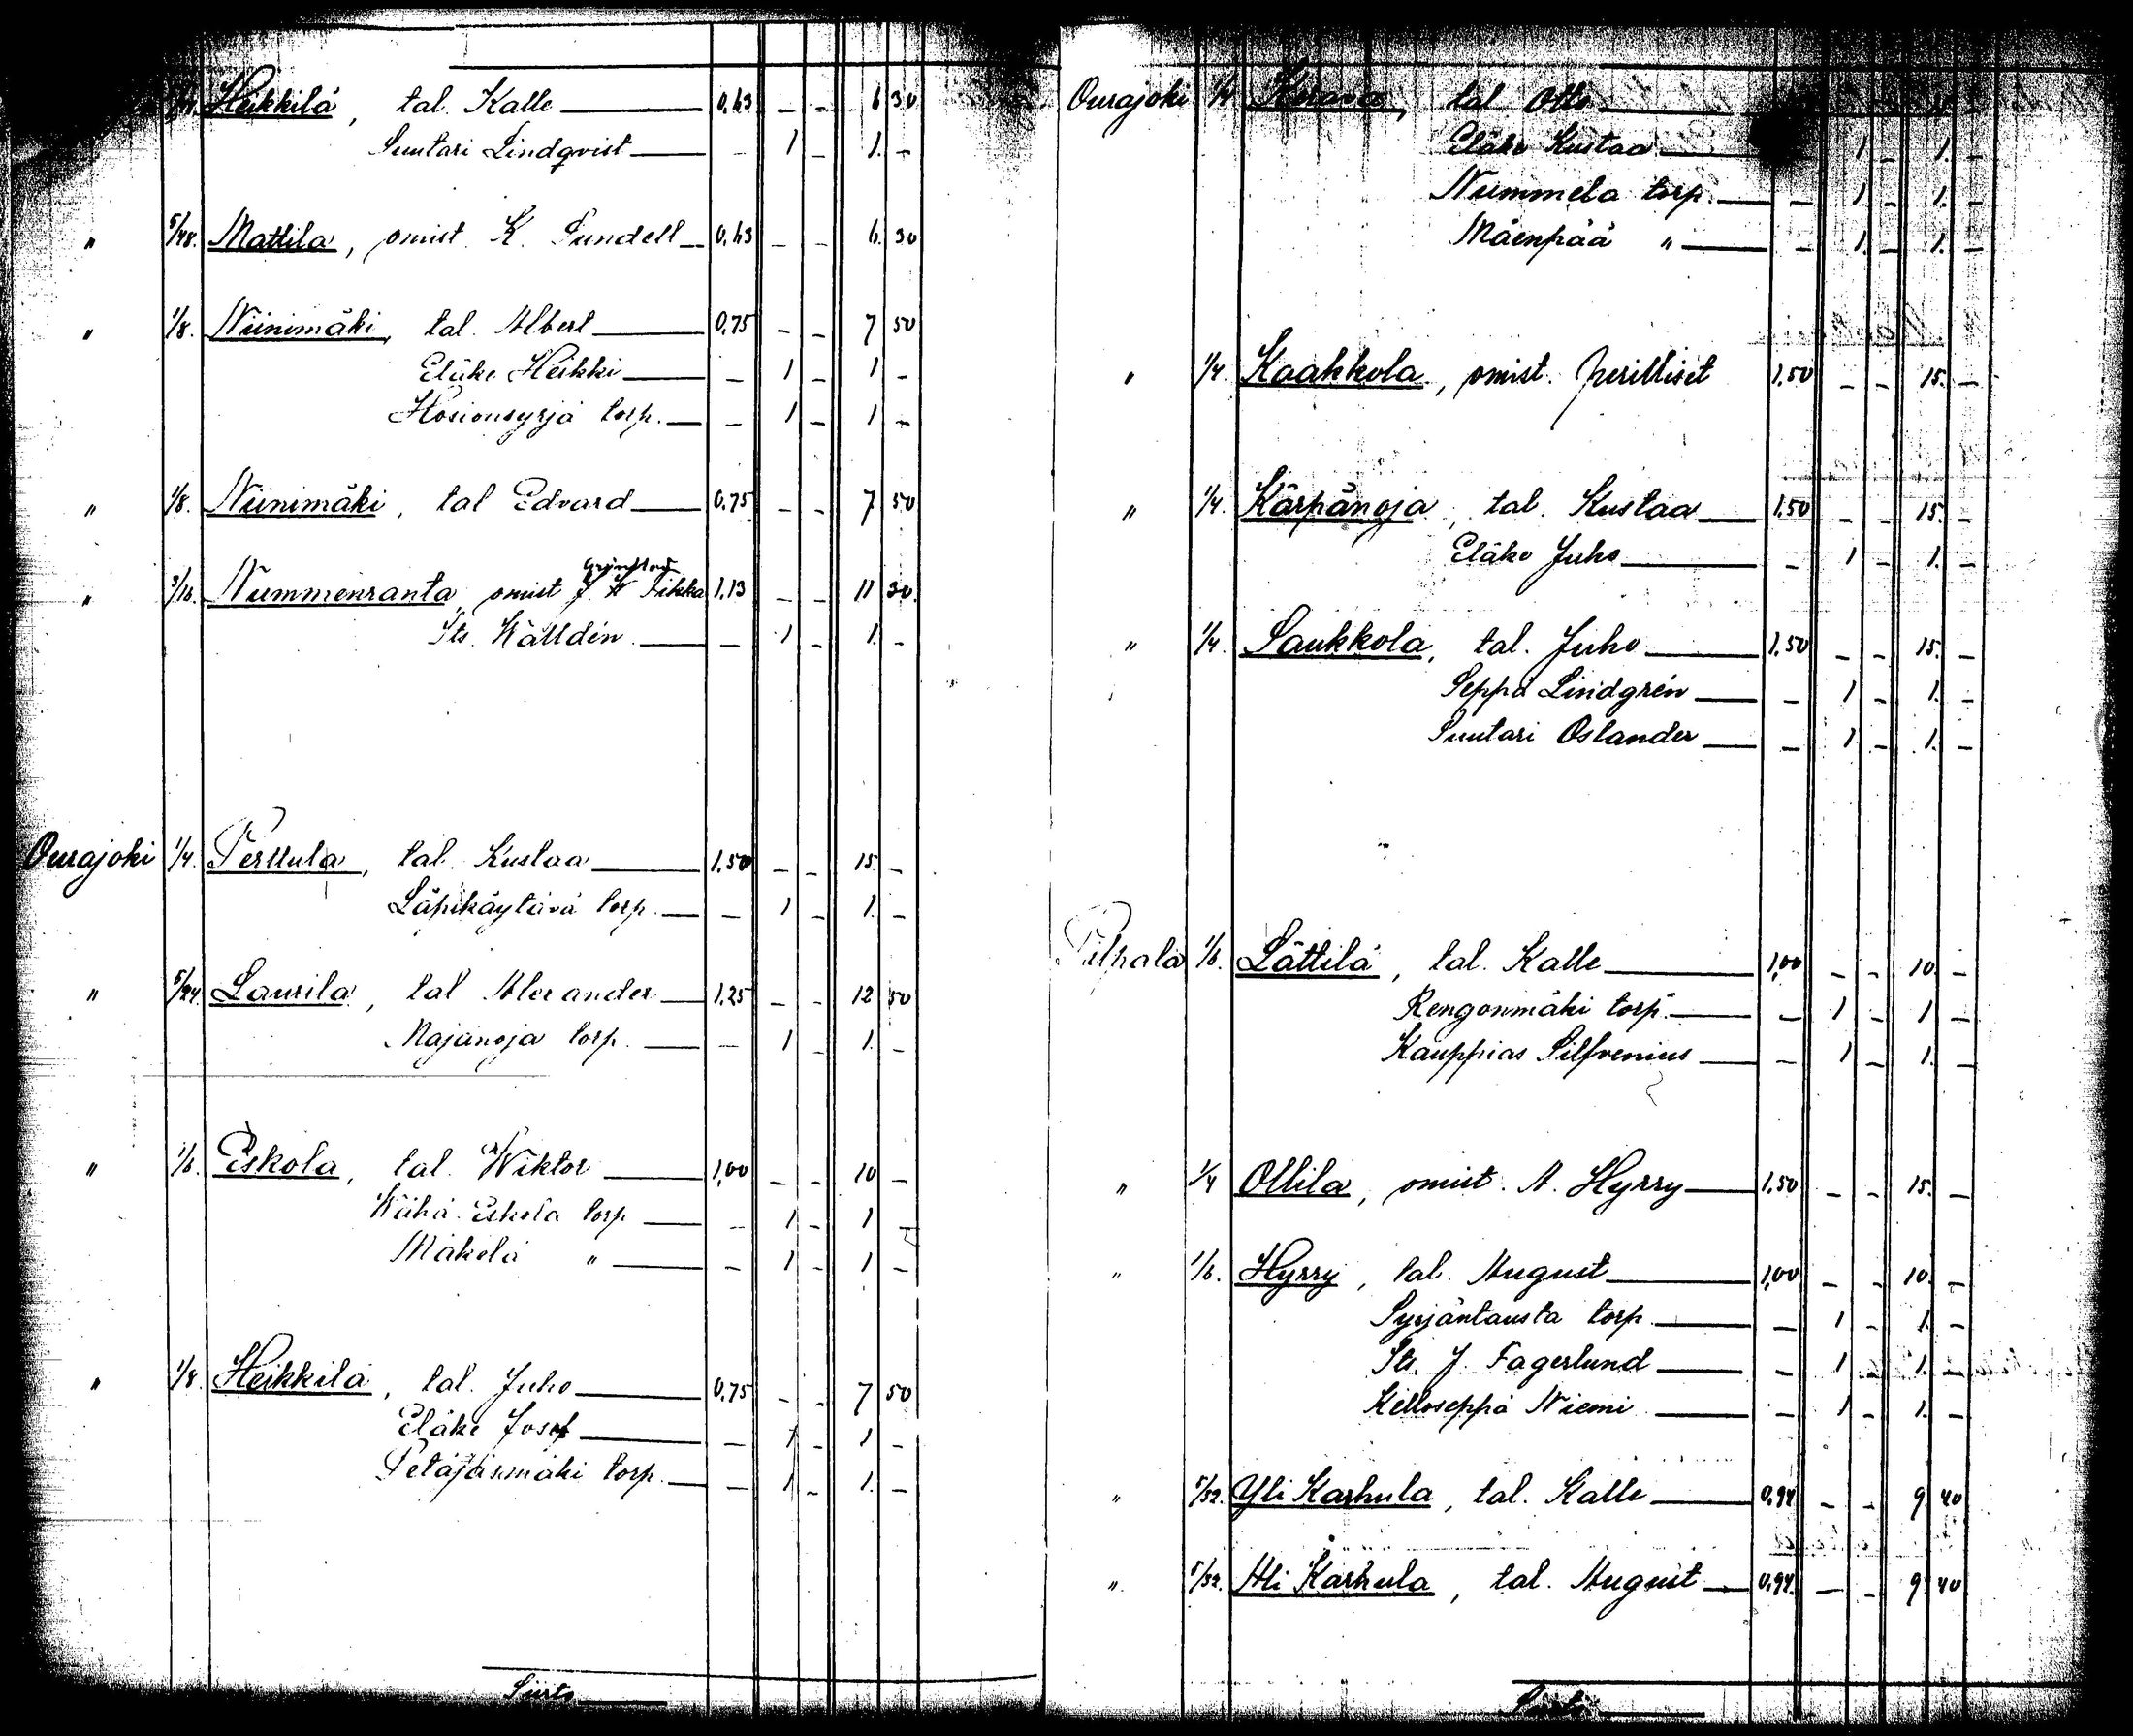 Heikkilä, tal. Kalle — 0,63 - - 6 30
Suutari Lindqvist — - 1 - 1. -
" 5/48. Mattila, omist. K. Sundell — 0,63 - - 6. 30
" 1/8. Niinimäki, tal. Albert — 0,75 - - 7 50
Eläke Heikki — - 1 - 1 -
Hosionsyrjä torp. — - 1 - 1 -
" 1/8. Niinimäki, tal Edvard — 0,75 - - 7 50
" 3/16. Nummenranta, omist J. W Sikka 1,13 - - 11 30.
Its. Wälldén — - 1 - 1. -
Ourajoki 1/4. Perttula, tal. Kustaa — 1,50 - - 15. -
Läpikäytävä torp. — - 1 - 1. -
" 5/24. Laurila, tal Alexander — 1,25 - - 12 50
Majanoja torp. — - 1 - 1. -
" 1/6. Eskola, tal. Wiktor — 1,00 - - 10 -
Wähä-Eskola torp — - 1 - 1 -
Mäkelä " — - 1 - 1 -
" 1/8. Heikkilä, tal. Juho — 0,75 - - 7 50
Eläke Josef — - 1 - 1 -
Petäjäsmäki torp. — - 1 - 1. -
Siirto —
Ourajoki 1/4 Kerava, tal Otto —
Eläke Kustaa — 1 - 1. -
Nummela torp. — - 1 - 1. -
Mäenpää " — - 1. - 1. -
" 1/4. Kaakkola, omist. perilliset 1,50 - - 15. -
" 1/4. Kärpänoja, tal. Kustaa — 1,50 - - 15. -
Eläke Juho — - 1 - 1. -
" 1/4. Saukkola, tal. Juho — 1,50 - - 15. -
Seppä Lindgrén — - 1 - 1. -
Suutari Oslander — - 1 - 1. -
Pilpala 1/6. Lättilä, tal. Kalle — 1,00 - - 10. -
Rengonmäki torp. — - 1 - 1 -
Kauppias Silfvenius — - 1 - 1. -
" 1/4 Ollila, omist. A. Hyrry — 1,50 - - 15. -
" 1/6. Hyrry, tal. August — 1,00 - - 10. -
Syrjäntausta torp. — - 1 - 1. -
Its. J. Fagerlund — - 1 - 1. -
Kelloseppä Niemi — - 1 - 1. -
" 5/32. Yli Karhula, tal. Kalle — 0,94 - - 9 40
" 5/32. Ali Karhula, tal. August — 0,94. - - 9 40
Siirto —